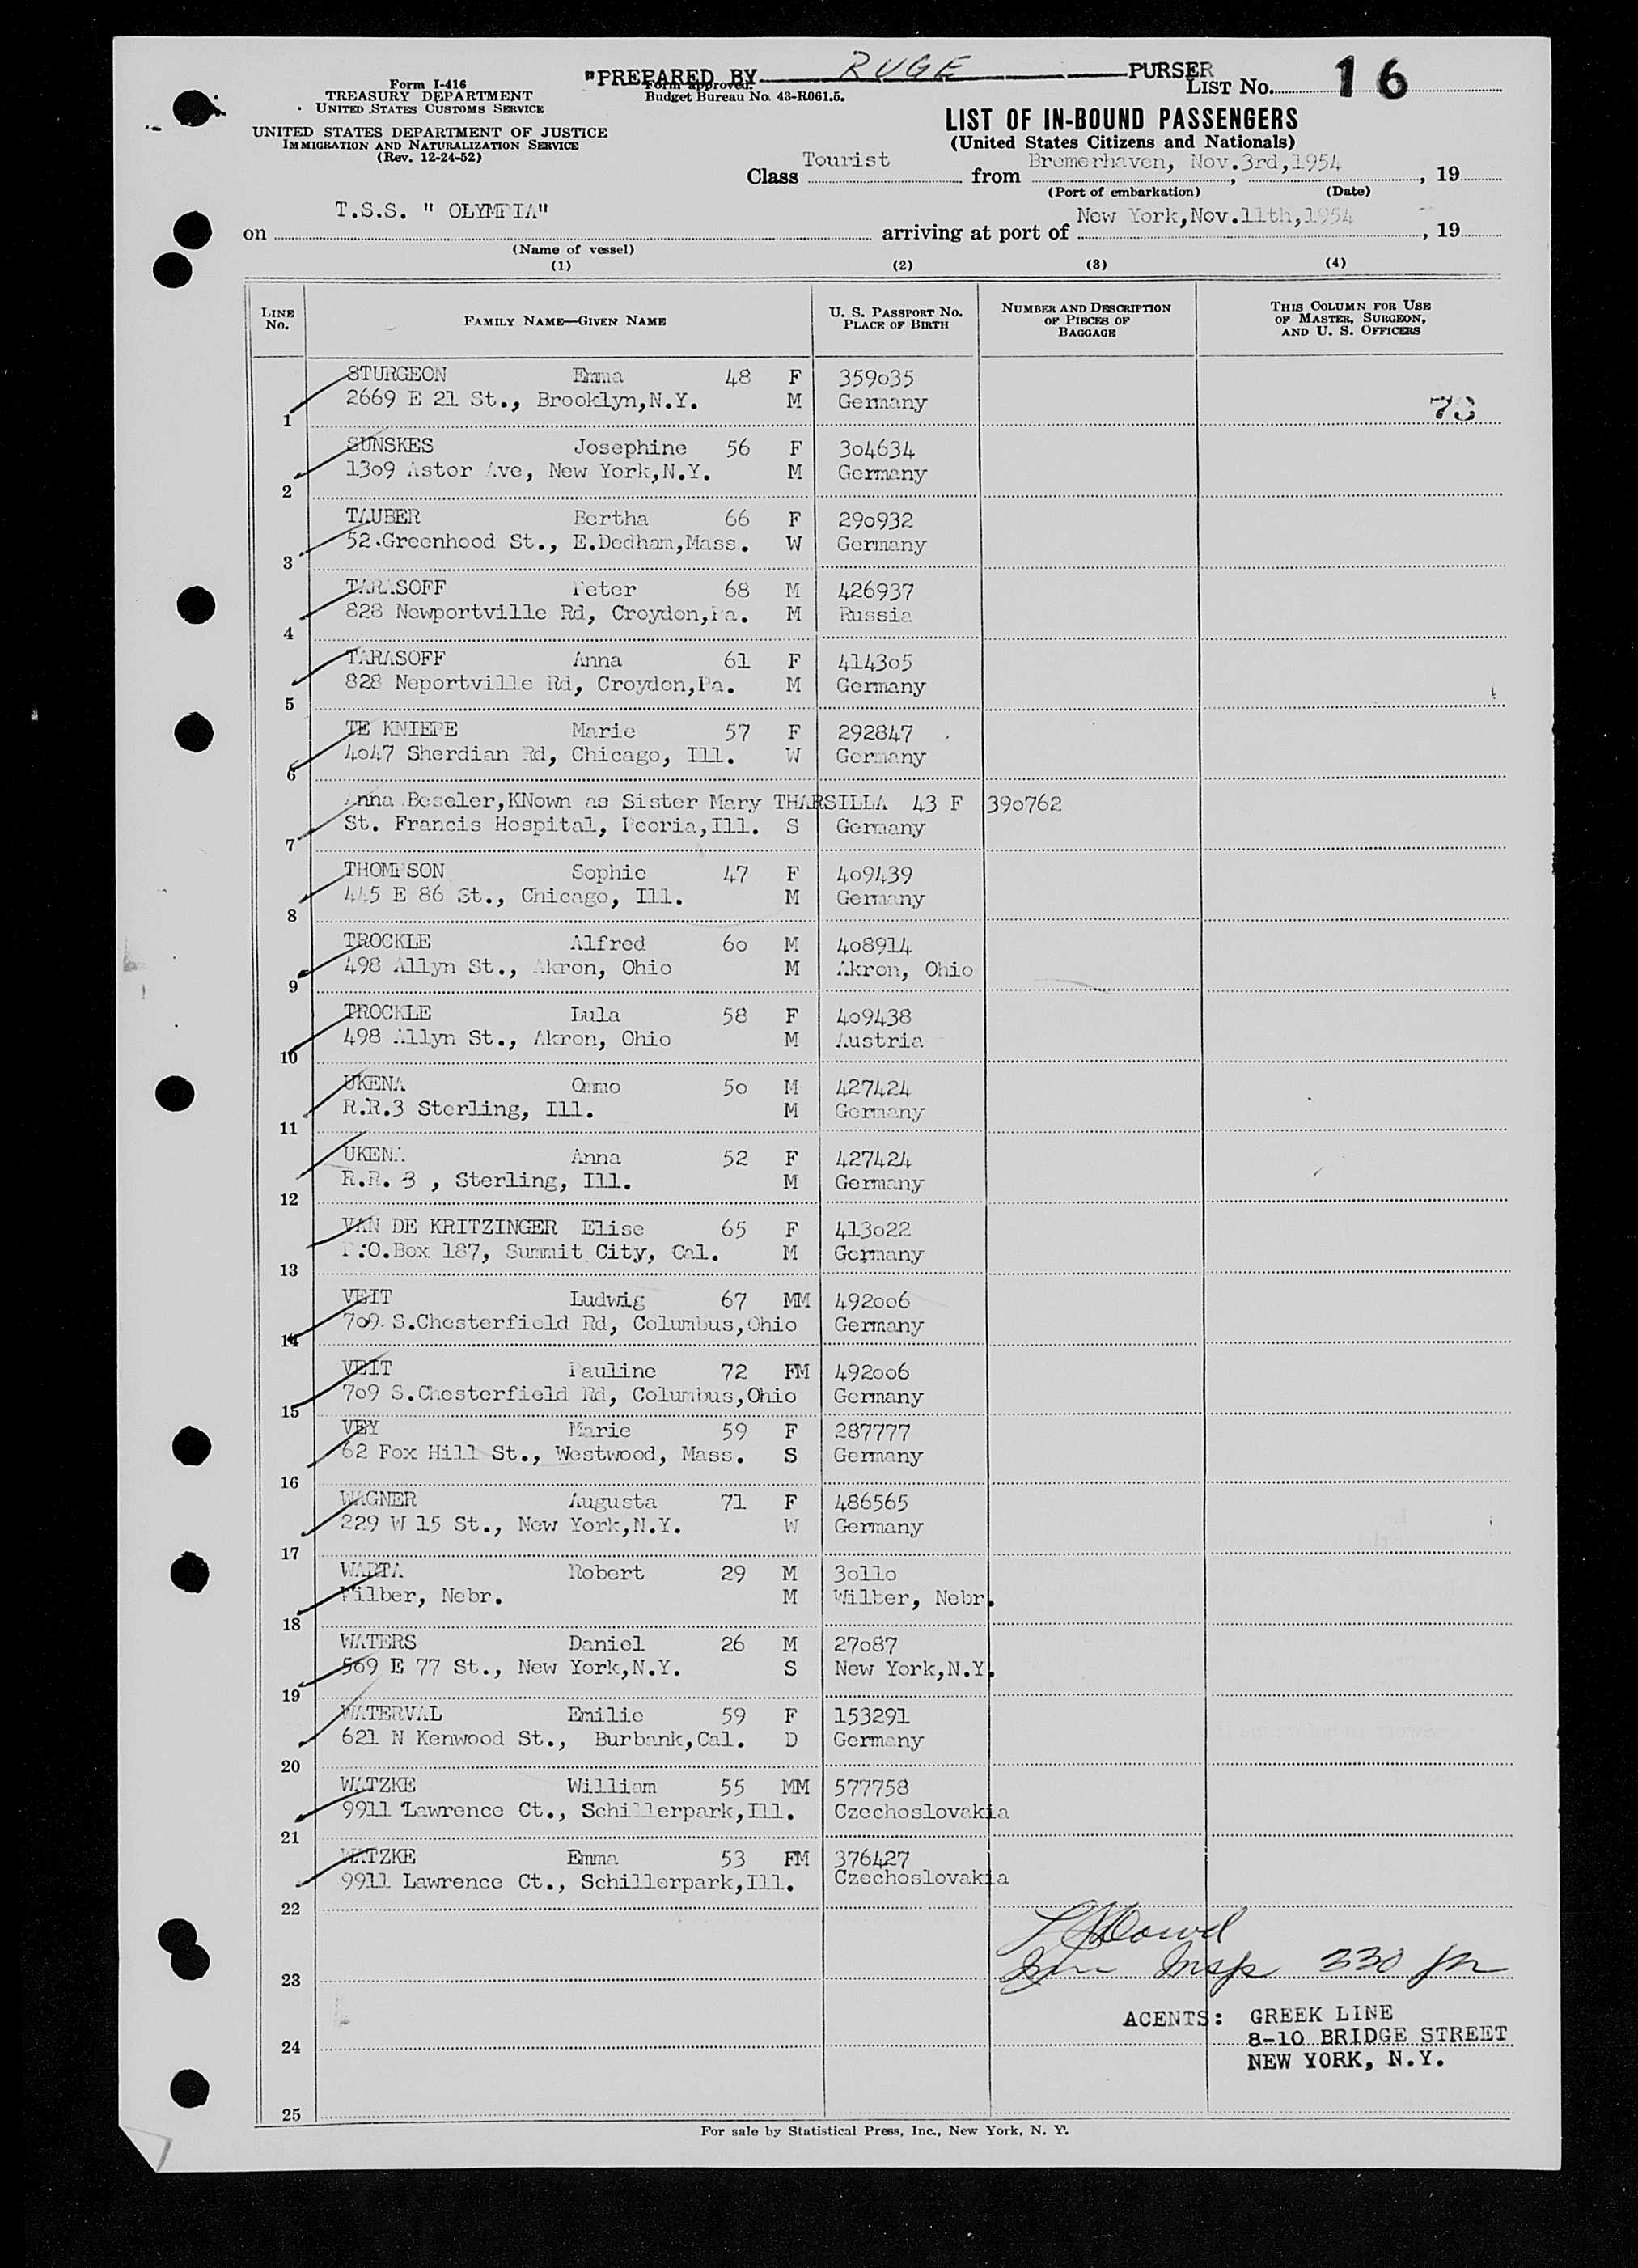 "PREPARED BY RUGE PURSER
Form I-416
TREASURY DEPARTMENT
UNITED STATES CUSTOMS SERVICE
Form approved.
Budget Bureau No. 43-R061.5.
List No. 16
UNITED STATES DEPARTMENT OF JUSTICE
IMMIGRATION AND NATURALIZATION SERVICE
(Rev. 12-24-52)
LIST OF IN-BOUND PASSENGERS
(United States Citizens and Nationals)
Class Tourist from Bremerhaven, Nov.3rd,1954, 19
(Port of embarkation) (Date)
on T.S.S. " OLYMPIA" arriving at port of New York,Nov.11th,1954, 19
(Name of vessel)
(1) (2) (3) (4)
LINE No. FAMILY NAME—GIVEN NAME U. S. PASSPORT No. PLACE OF BIRTH NUMBER AND DESCRIPTION OF PIECES OF BAGGAGE THIS COLUMN FOR USE OF MASTER, SURGEON, AND U. S. OFFICERS
STURGEON Emma 48 F 359o35
1 2669 E 21 St., Brooklyn,N.Y. M Germany
SUNSKES Josephine 56 F 3o4634
2 13o9 Astor Ave, New York,N.Y. M Germany
TAUBER Bertha 66 F 29o932
3 52.Greenhood St., E.Dedham,Mass. W Germany
TARASOFF Peter 68 M 426937
4 828 Newportville Rd, Croydon,Pa. M Russia
TARASOFF Anna 61 F 4143o5
5 828 Neportville Rd, Croydon,Pa. M Germany
TE KNIEPE Marie 57 F 292847
6 4o47 Sherdian Rd, Chicago, Ill. W Germany
Anna Beseler,KNown as Sister Mary THARSILLA 43 F 39o762
7 St. Francis Hospital, Peoria,Ill. S Germany
THOMPSON Sophie 47 F 4o9439
8 445 E 86 St., Chicago, Ill. M Germany
TROCKLE Alfred 6o M 4o8914
9 498 Allyn St., Akron, Ohio M Akron, Ohio
TROCKLE Lula 58 F 4o9438
10 498 Allyn St., Akron, Ohio M Austria
UKENA Onno 5o M 427424
11 R.R.3 Sterling, Ill. M Germany
UKENA Anna 52 F 427424
12 R.R. 3 , Sterling, Ill. M Germany
VAN DE KRITZINGER Elise 65 F 413o22
13 P.O.Box 187, Summit City, Cal. M Germany
VEIT Ludwig 67 MM 492oo6
14 7o9 S.Chesterfield Rd, Columbus,Ohio Germany
VEIT Pauline 72 FM 492oo6
15 7o9 S.Chesterfield Rd, Columbus,Ohio Germany
VEY Marie 59 F 287777
16 62 Fox Hill St., Westwood, Mass. S Germany
WAGNER Augusta 71 F 486565
17 229 W 15 St., New York,N.Y. W Germany
WARTA Robert 29 M 3o11o
18 Wilber, Nebr. M Wilber, Nebr.
WATERS Daniel 26 M 27o87
19 569 E 77 St., New York,N.Y. S New York,N.Y.
WATERVAL Emilie 59 F 153291
20 621 N Kenwood St., Burbank,Cal. D Germany
WATZKE William 55 MM 577758
21 9911 Lawrence Ct., Schillerpark,Ill. Czechoslovakia
WATZKE Emma 53 FM 376427
22 9911 Lawrence Ct., Schillerpark,Ill. Czechoslovakia
23 Insp 330
AGENTS: GREEK LINE
24 8-10 BRIDGE STREET
NEW YORK, N.Y.
25
For sale by Statistical Press, Inc., New York, N. Y.